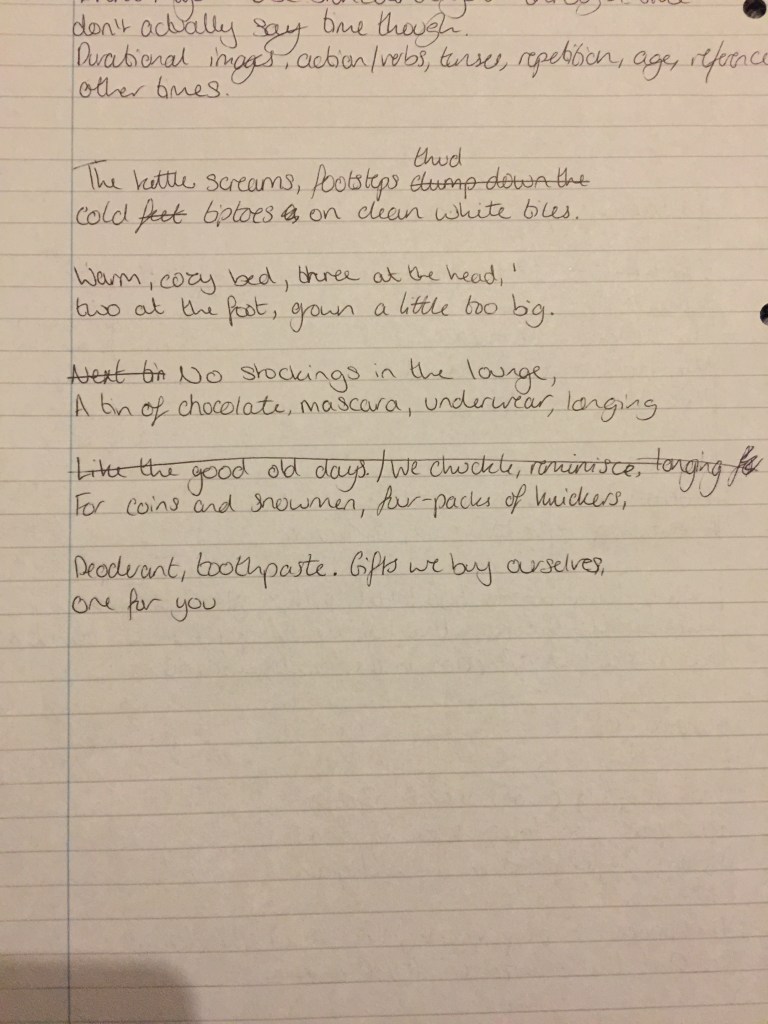 don't actually say time though.
Durational images, action/verbs, tenses, repetition, age, reference
other times.
thud
The kettle screams, footsteps clump down the
cold feet tiptoes on clean white tiles.
Warm, cozy bed, three at the head,
two at the foot, grown a little too big.
Next tin No stockings in the lounge,
A tin of chocolate, mascara, underwear, longing
Like the good old days. / We chuckle, reminisce, longing for
For coins and snowmen, four-packs of knickers,
Deodorant, toothpaste. Gifts we buy ourselves,
one for you